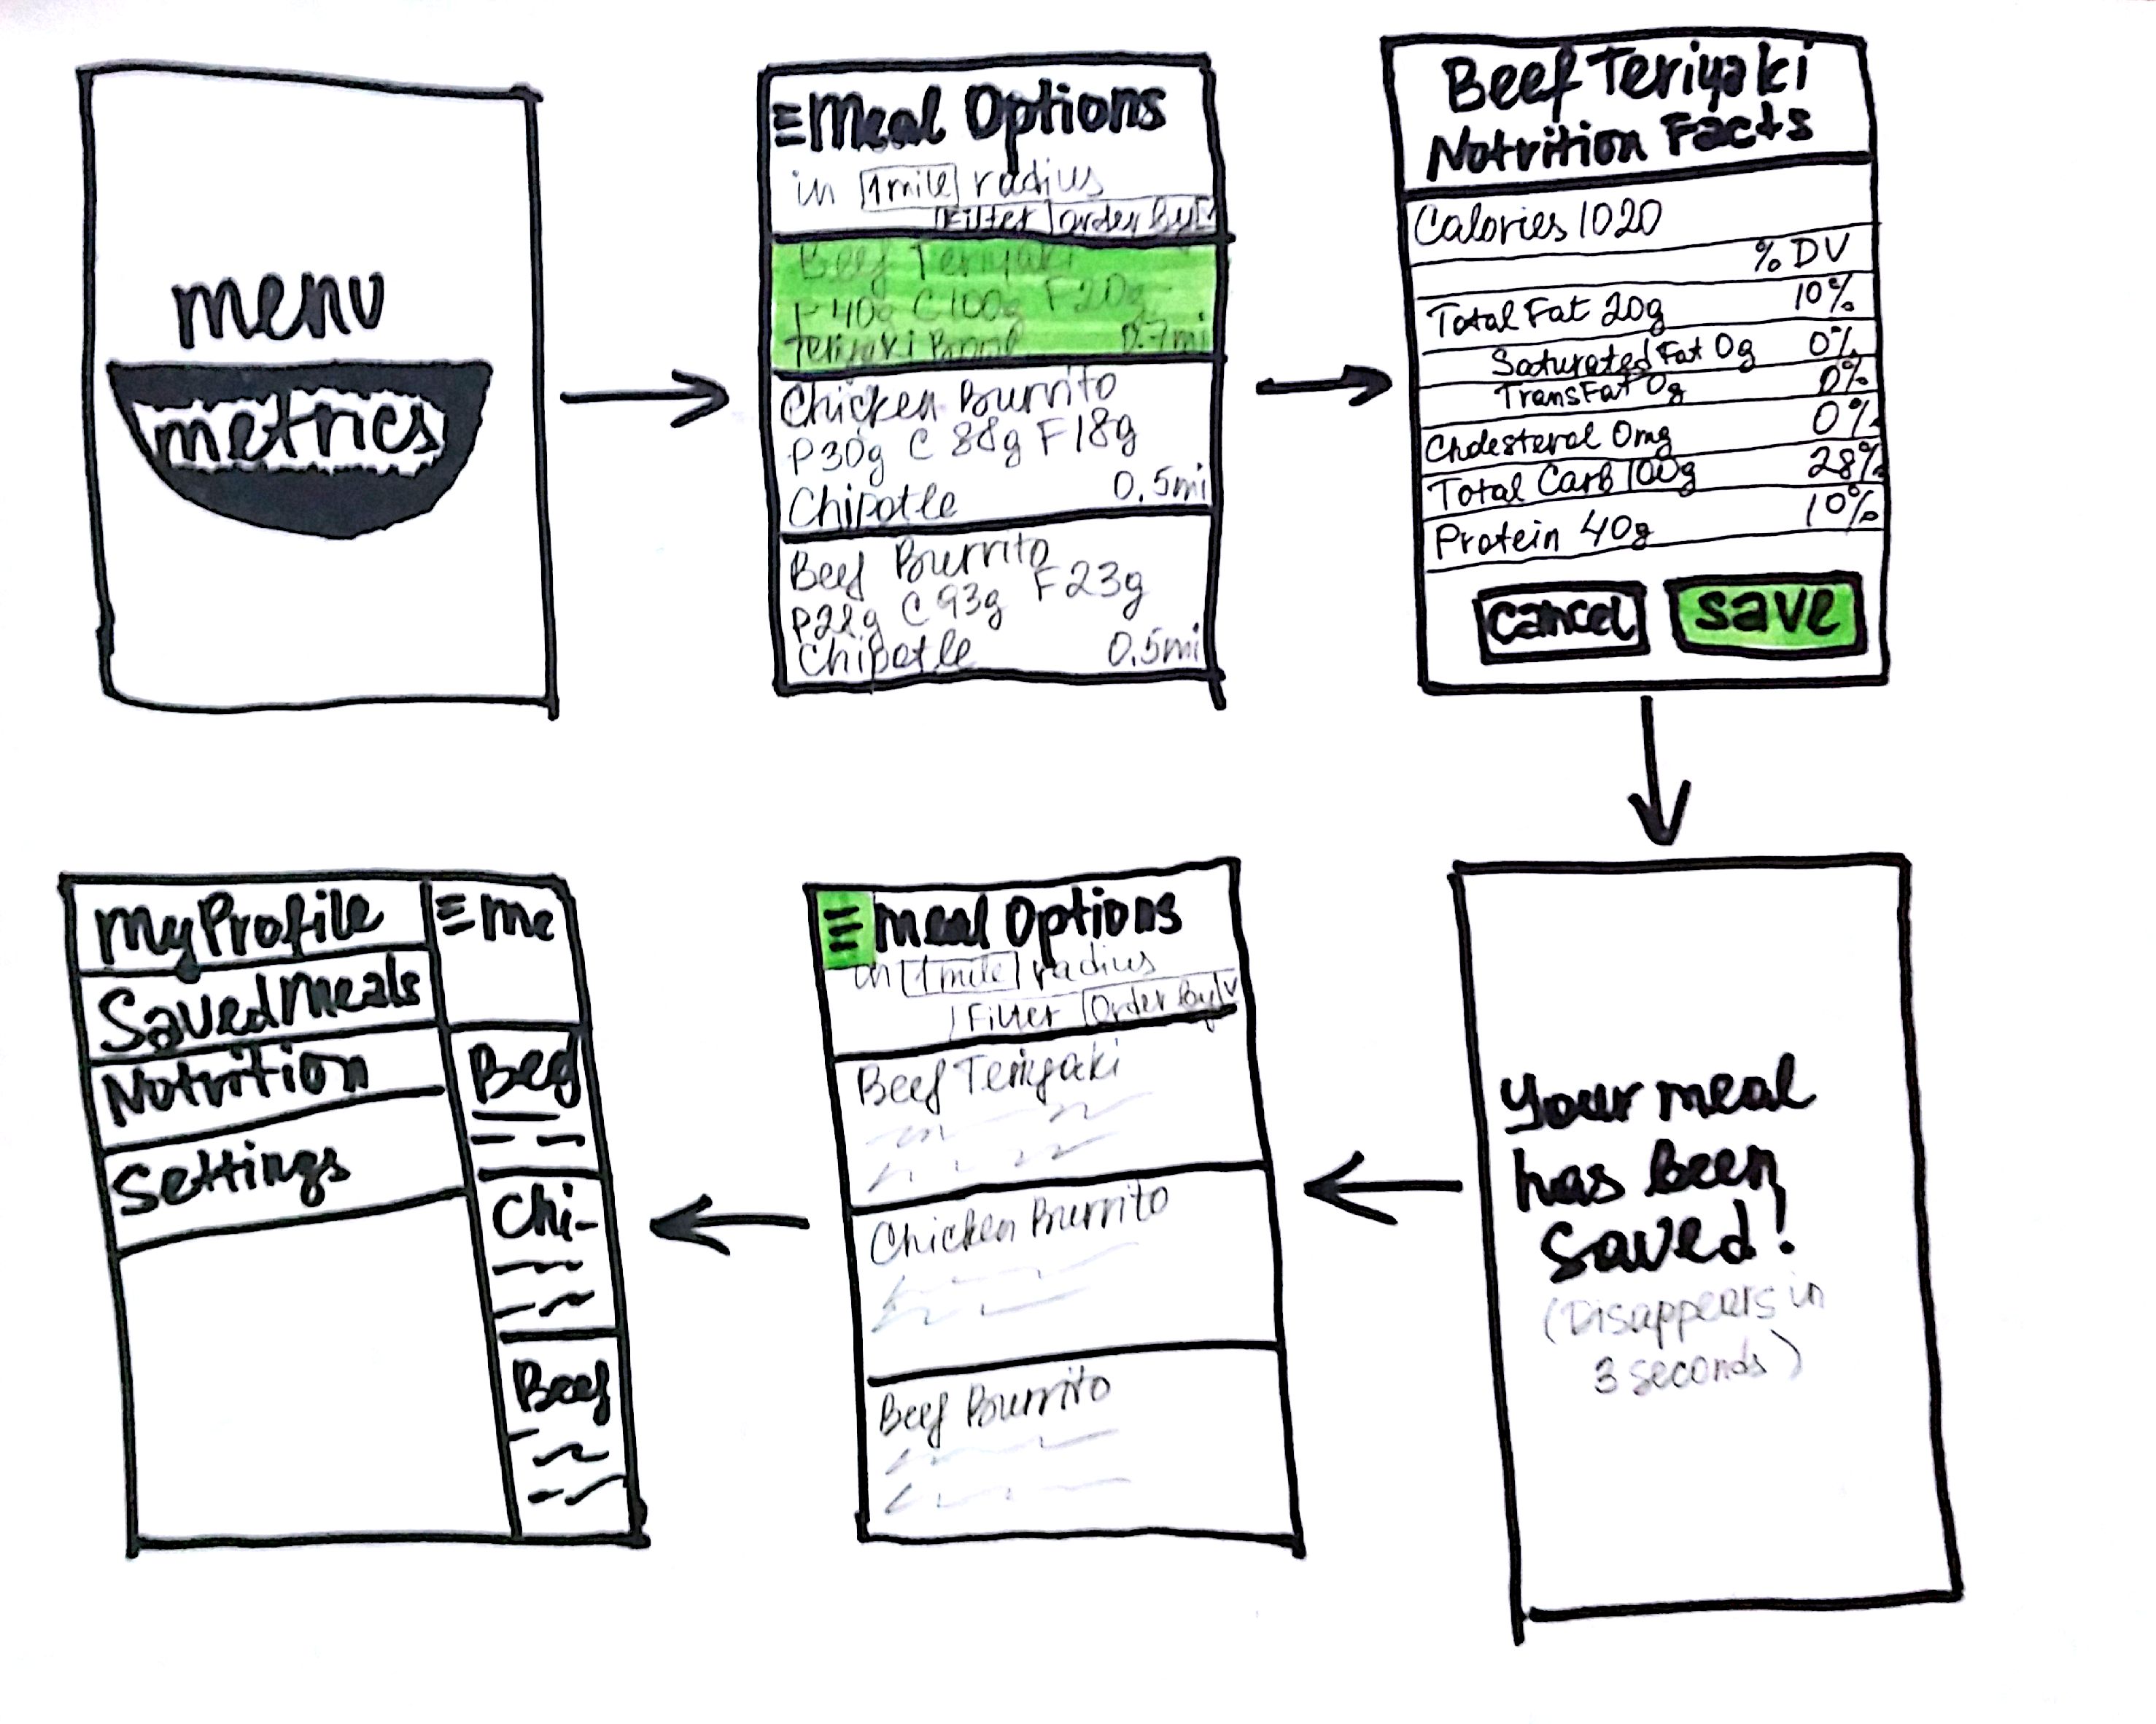 menu
metrics
≡ Meal Options
in 1mile radius
Filter Order By
Beef Teriyaki
P40g C100g F20g
Teriyaki Bowl 0.7mi
Chicken Burrito
P30g C88g F18g
Chipotle 0.5mi
Beef Burrito
C93g F23g
Chipotle 0.5mi
Beef Teriyaki
Nutrition Facts
Calories 1020
% DV
Total Fat 20g 10%
Saturated Fat 0g 0%
Trans Fat 0g 0%
Cholesterol 0mg 0%
Total Carb 100g 28%
Protein 40g 10%
Cancel Save
Your meal
has been
saved!
(Disappears in
3 seconds)
≡ Meal Options
in 1mile radius
Filter Order By v
Beef Teriyaki
Chicken Burrito
Beef Burrito
My Profile
Saved Meals
Nutrition
Settings
≡ Me
Beef
Chi-
Beef